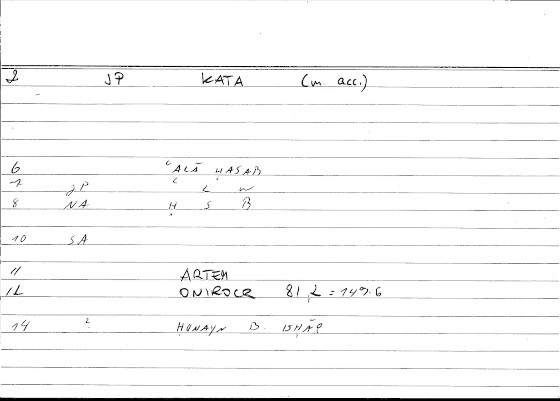 2 JP KATA (m. acc.)
6 ʿALĀ ḤASAB
7 JP ʿ L W
8 NA Ḥ S B
10 SA
11 ARTEM
12 ONIROCR 81, 2 = 149.6
14 ? ḤUNAYN B. ISḤĀQ